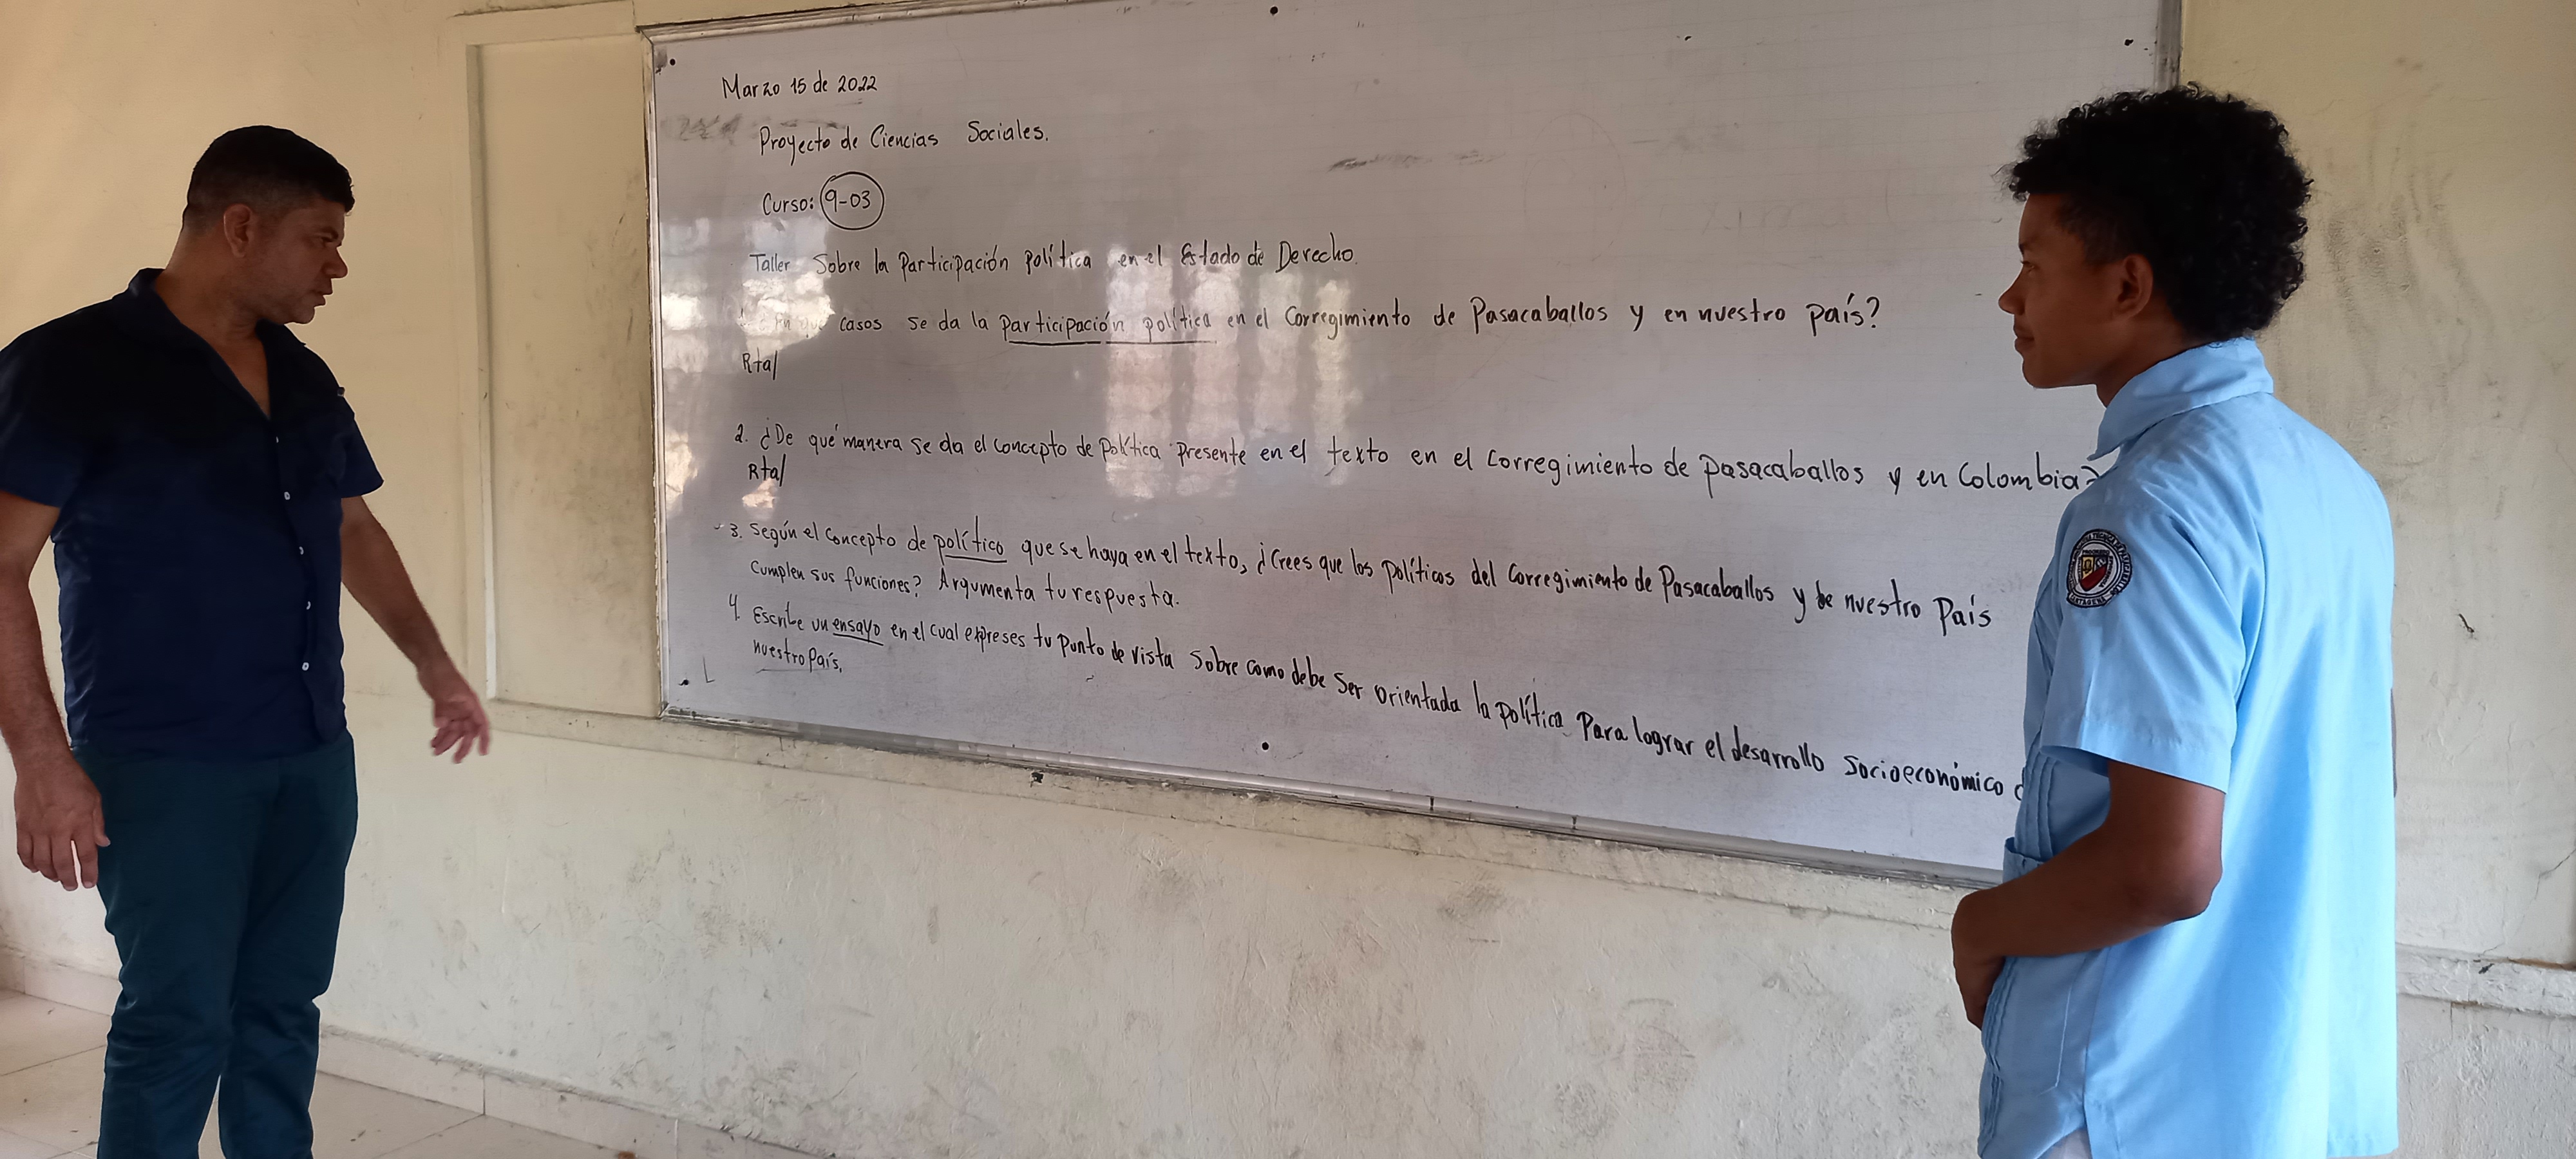 Marzo 15 de 2022
Proyecto de Ciencias Sociales.
Curso: 9-03
Taller Sobre la Participación política en el Estado de Derecho.
casos se da la participación política en el Corregimiento de Pasacaballos y en nuestro país?
Rta/
2. ¿De qué manera se da el concepto de Política presente en el texto en el corregimiento de pasacaballos y en Colombia?
Rta/
3. Según el concepto de político que se haya en el texto, ¿Crees que los políticos del Corregimiento de Pasacaballos y de nuestro País
Cumplen sus funciones? Argumenta tu respuesta.
4. Escribe un ensayo en el cual expreses tu punto de vista sobre como debe ser orientada la política para lograr el desarrollo socioeconómico
nuestro país.